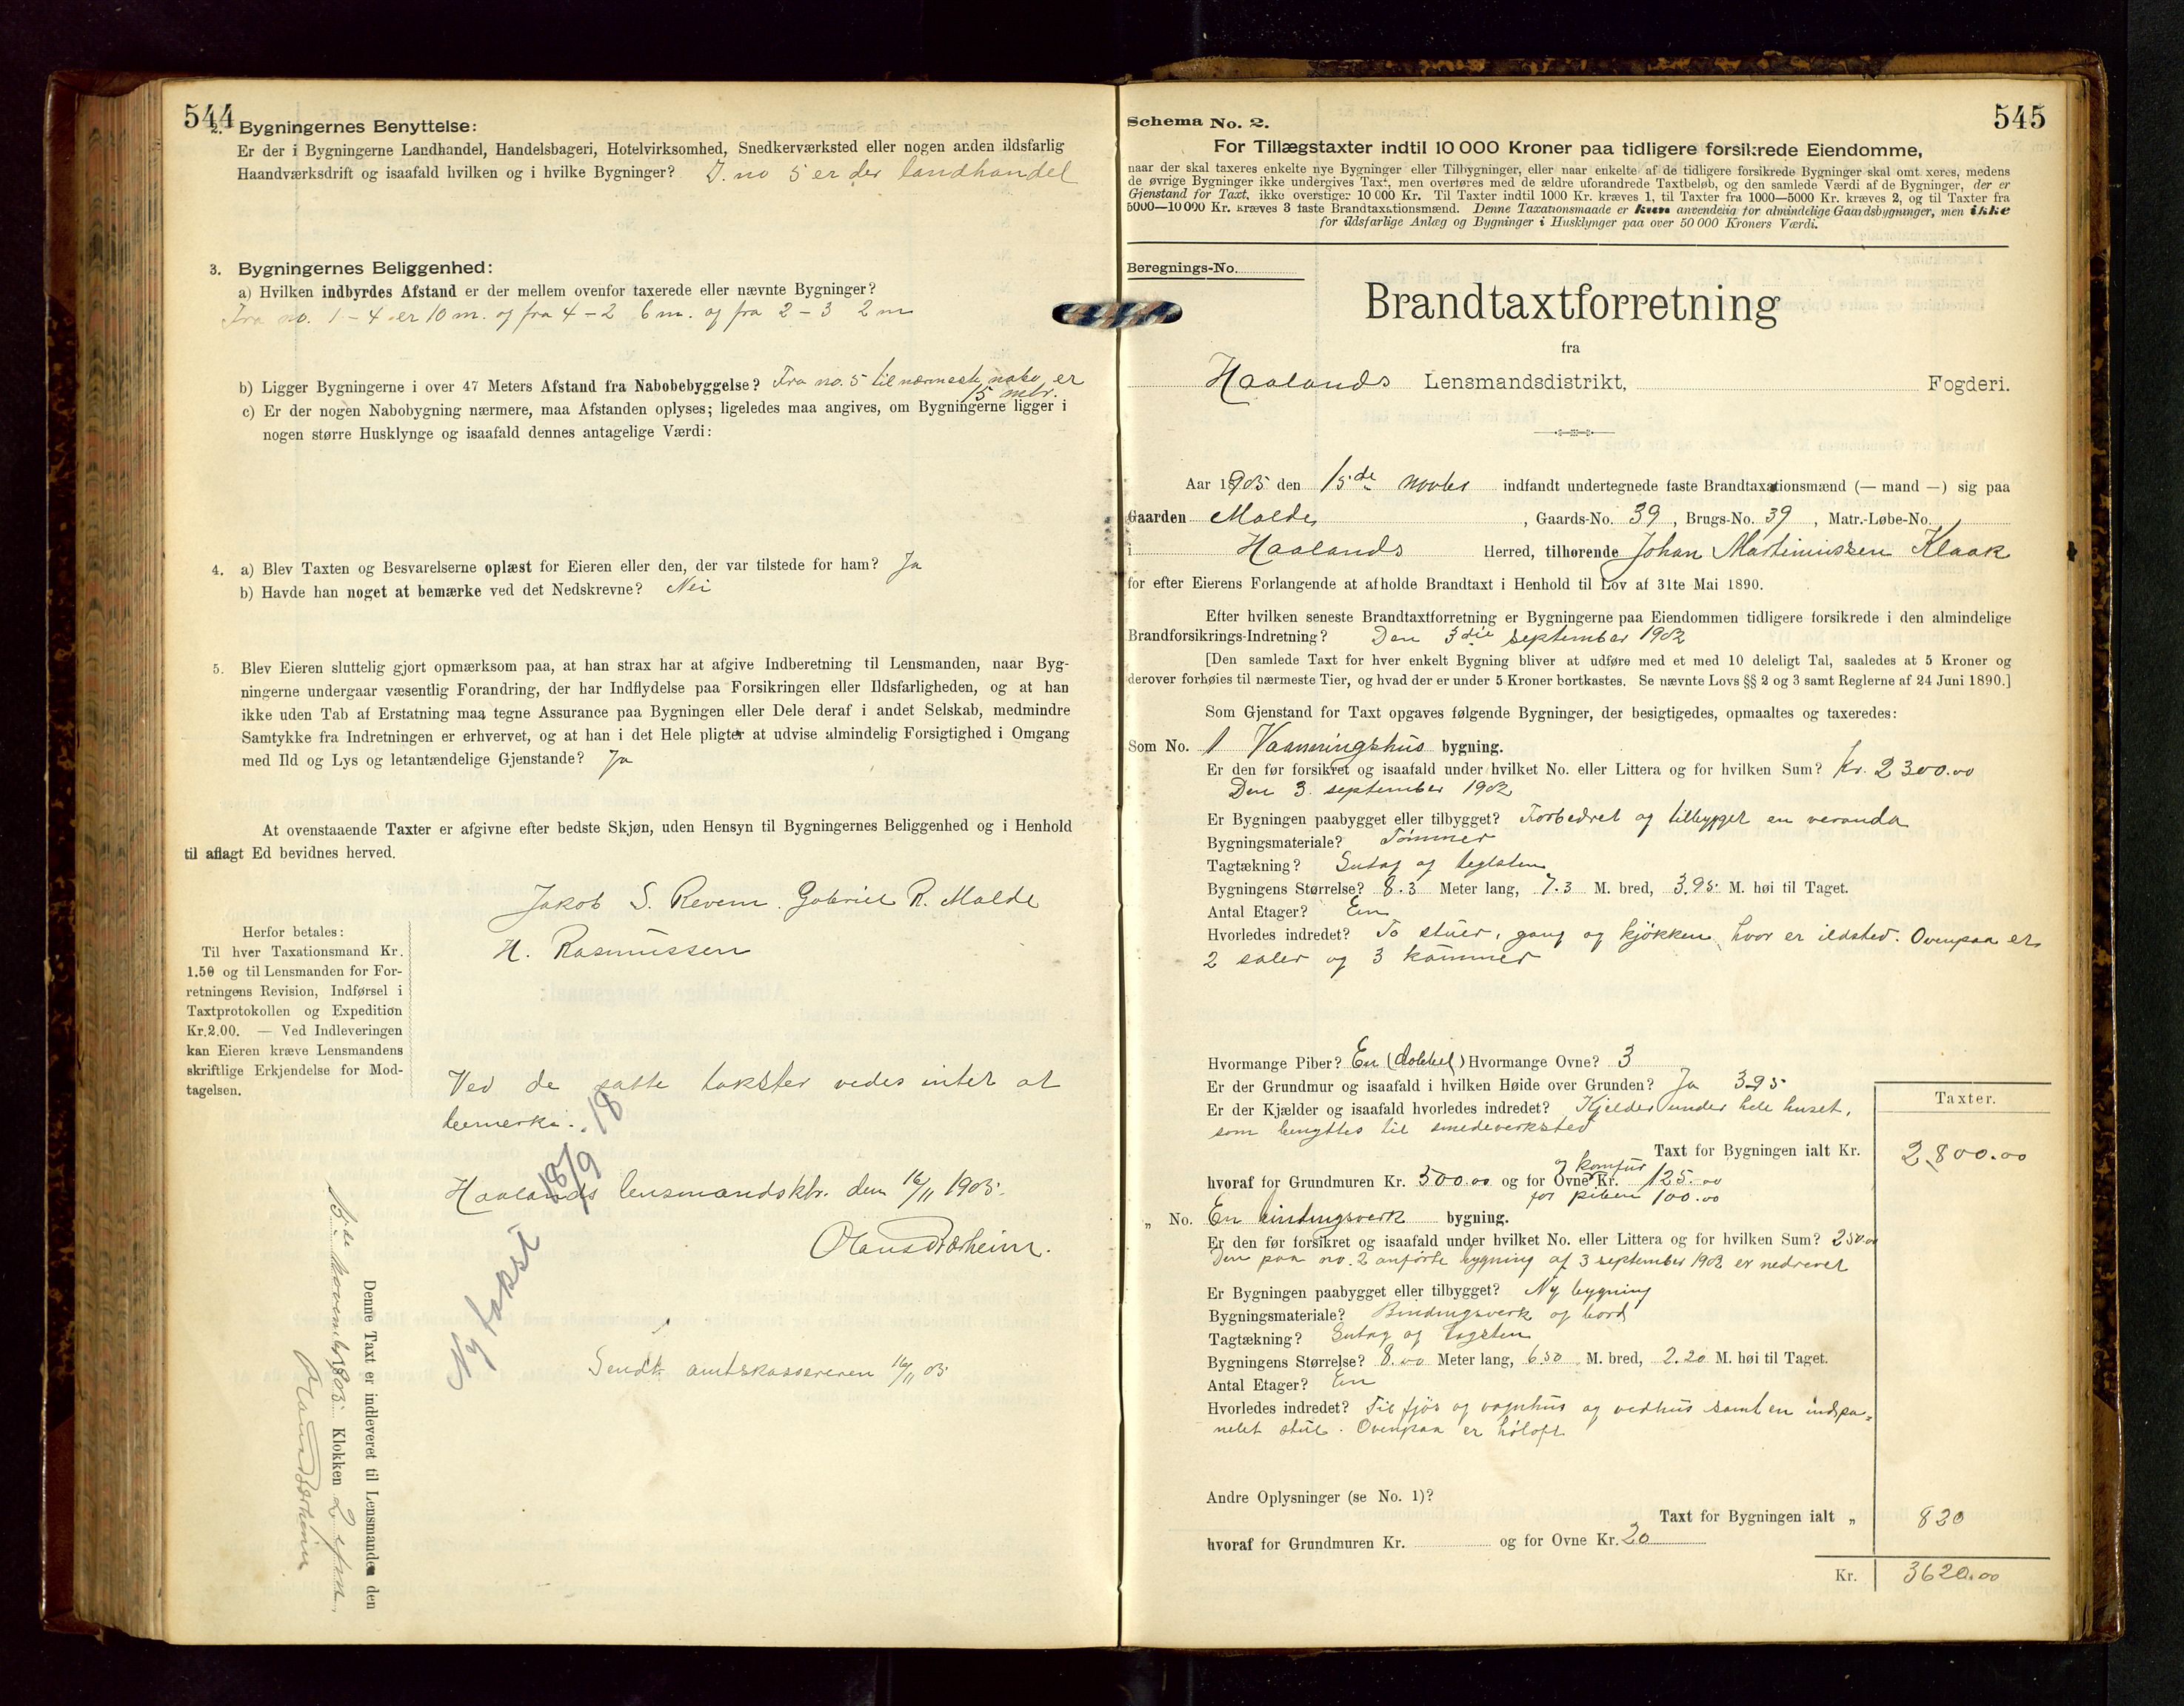 544
2. Bygningernes Benyttelse:
Er der i Bygningerne Landhandel, Handelsbageri, Hotelvirksomhed, Snedkerværksted eller nogen anden ildsfarlig
Haandværksdrift og isaafald hvilken og i hvilke Bygninger? I. no 5 er der landhandel
3. Bygningernes Beliggenhed:
a) Hvilken indbyrdes Afstand er der mellem ovenfor taxerede eller nævnte Bygninger?
Fra no. 1 – 4 er 10 m. og fra 4 – 2 6 m. og fra 2 – 3 2 m
b) Ligger Bygningerne i over 47 Meters Afstand fra Nabobebyggelse? Fra no. 5 til nærmeste nabo er
15 mtr.
c) Er der nogen Nabobygning nærmere, maa Afstanden oplyses; ligeledes maa angives, om Bygningerne ligger i
nogen større Husklynge og isaafald dennes antagelige Værdi:
4. a) Blev Taxten og Besvarelserne oplæst for Eieren eller den, der var tilstede for ham? Ja
b) Havde han noget at bemærke ved det Nedskrevne? Nei
5. Blev Eieren sluttelig gjort opmærksom paa, at han strax har at afgive Indberetning til Lensmanden, naar Byg-
ningerne undergaar væsentlig Forandring, der har Indflydelse paa Forsikringen eller Ildsfarligheden, og at han
ikke uden Tab af Erstatning maa tegne Assurance paa Bygningen eller Dele deraf i andet Selskab, medmindre
Samtykke fra Indretningen er erhvervet, og at han i det Hele pligter at udvise almindelig Forsigtighed i Omgang
med Ild og Lys og letantændelige Gjenstande? Ja
At ovenstaaende Taxter er afgivne efter bedste Skjøn, uden Hensyn til Bygningernes Beliggenhed og i Henhold
til aflagt Ed bevidnes herved.
Jakob S. Revem. Gabriel R. Malde
H. Rasmussen
Herfor betales:
Til hver Taxationsmand Kr.
1.50 og til Lensmanden for For-
retningens Revision, Indførsel i
Taxtprotokollen og Expedition
Kr.2.00. — Ved Indleveringen
kan Eieren kræve Lensmandens
skriftlige Erkjendelse for Mod-
tagelsen.
Ved de satte takster vedes intet at
bemerke.
Haalands lensmandsktr. den 16/11 1905.
Ny takst 18/9 18
Sendt amtskassereren 16/11 05
Denne Taxt er indleveret til Lensmanden den
15de November 1905 Klokken 2 efm.
545
Schema No. 2.
For Tillægstaxter indtil 10 000 Kroner paa tidligere forsikrede Eiendomme,
naar der skal taxeres enkelte nye Bygninger eller Tilbygninger, eller naar enkelte af de tidligere forsikrede Bygninger skal omtaxeres, medens
de øvrige Bygninger ikke undergives Taxt, men overføres med de ældre uforandrede Taxtbeløb, og den samlede Værdi af de Bygninger, der er
Gjenstand for Taxt, ikke overstiger 10 000 Kr. Til Taxter indtil 1000 Kr. kræves 1, til Taxter fra 1000—5000 Kr. kræves 2, og til Taxter fra
5000—10 000 Kr. kræves 3 faste Brandtaxationsmænd. Denne Taxationsmaade er kun anvendelig for almindelige Gaardsbygninger, men ikke
for ildsfarlige Anlæg og Bygninger i Husklynger paa over 50 000 Kroners Værdi.
Beregnings-No.
Brandtaxtforretning
fra
Haalands Lensmandsdistrikt, Fogderi.
Aar 1905 den 15de novbr indfandt undertegnede faste Brandtaxationsmænd (— mand —) sig paa
Gaarden Malde, Gaards-No. 39, Brugs-No. 39, Matr.-Løbe-No.
i Haalands Herred, tilhørende Johan Martinussen Klaak
for efter Eierens Forlangende at afholde Brandtaxt i Henhold til Lov af 31te Mai 1890.
Efter hvilken seneste Brandtaxtforretning er Bygningerne paa Eiendommen tidligere forsikrede i den almindelige
Brandforsikrings-Indretning? Den 3die september 1902
[Den samlede Taxt for hver enkelt Bygning bliver at udføre med et med 10 deleligt Tal, saaledes at 5 Kroner og
derover forhøies til nærmeste Tier, og hvad der er under 5 Kroner bortkastes. Se nævnte Lovs §§ 2 og 3 samt Reglerne af 24 Juni 1890.]
Som Gjenstand for Taxt opgaves følgende Bygninger, der besigtigedes, opmaaltes og taxeredes:
Som No. 1 Vaaningshus bygning.
Er den før forsikret og isaafald under hvilket No. eller Littera og for hvilken Sum? Kr. 2300.00
Den 3. september 1902
Er Bygningen paabygget eller tilbygget? Forbedret og tilbygget en veranda
Bygningsmateriale? Tømmer
Tagtækning? Sutag og teglsten
Bygningens Størrelse? 8.3 Meter lang, 7.3 M. bred, 3.95 M. høi til Taget.
Antal Etager? En
Hvorledes indredet? To stuer, gang og kjøkken, hvor er ildsted. Ovenpaa er
2 saler og 3 kammer
Hvormange Piber? En (dobbel) Hvormange Ovne? 3
Er der Grundmur og isaafald i hvilken Høide over Grunden? Ja 3.95
Er der Kjælder og isaafald hvorledes indredet? Kjelder under hele huset,
som benyttes til smedeverksted
Taxter.
Taxt for Bygningen ialt Kr. 2800.00
og komfur
hvoraf for Grundmuren Kr. 500.00 og for Ovne Kr. 125.00
for piben 100.00
„ No. En bindingsverk bygning.
Er den før forsikret og isaafald under hvilket No. eller Littera og for hvilken Sum? 250.00
Den paa no. 2 anførte bygning af 3 september 1902 er nedrevet
Er Bygningen paabygget eller tilbygget? Ny bygning
Bygningsmateriale? Bindingsverk og bord
Tagtækning? Sutag og tagsten
Bygningens Størrelse? 8.00 Meter lang, 6.50 M. bred, 2.20 M. høi til Taget.
Antal Etager? En
Hvorledes indredet? Til fjøs og vognhus og vedhus samt en indpa-
nelet stue. Ovenpaa er høloft
Andre Oplysninger (se No. 1)?
Taxt for Bygningen ialt „ 820
hvoraf for Grundmuren Kr. og for Ovne Kr. 20
Kr. 3620.00